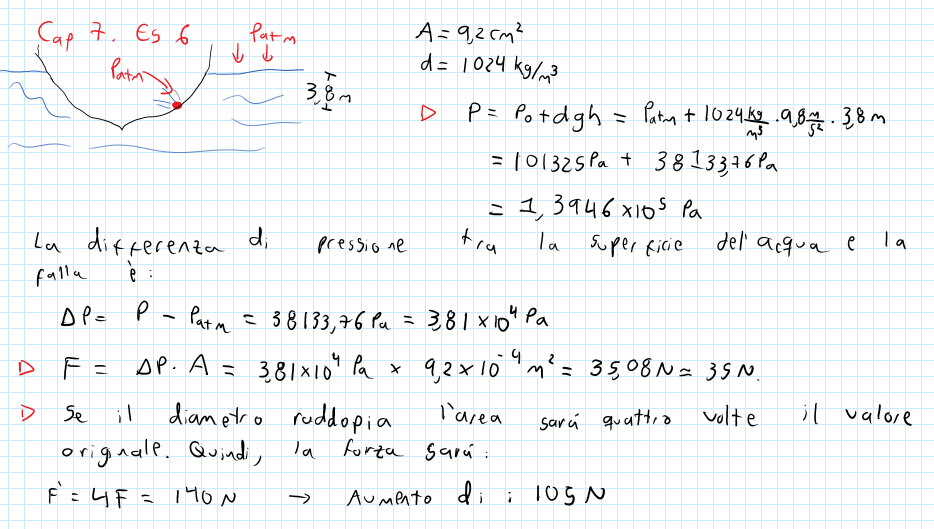 Cap 7. Es 6
Patm
Patm
3,8 m
A = 9,2 cm²
d = 1024 kg/m³
▷ P = P₀ + dgh = Patm + 1024 kg/m³ · 9,8 m/s² · 3,8 m
= 101325 Pa + 38133,76 Pa
= 1,3946 × 10⁵ Pa
La differenza di pressione tra la superficie del'acqua e la
falla è:
ΔP = P - Patm = 38133,76 Pa = 3,81 × 10⁴ Pa
▷ F = ΔP · A = 3,81 × 10⁴ Pa × 9,2 × 10⁻⁴ m² = 35,08 N ≃ 35 N.
▷ Se il diametro ruddopia l'area sará quattro volte il valore
originale. Quindi, la forza sará:
F' = 4F = 140 N → Aumento di : 105 N